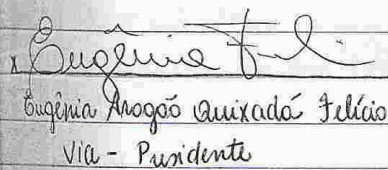 x Eugênia Feli
Eugênia Aragão Quixadá Felício
Vice - Presidente